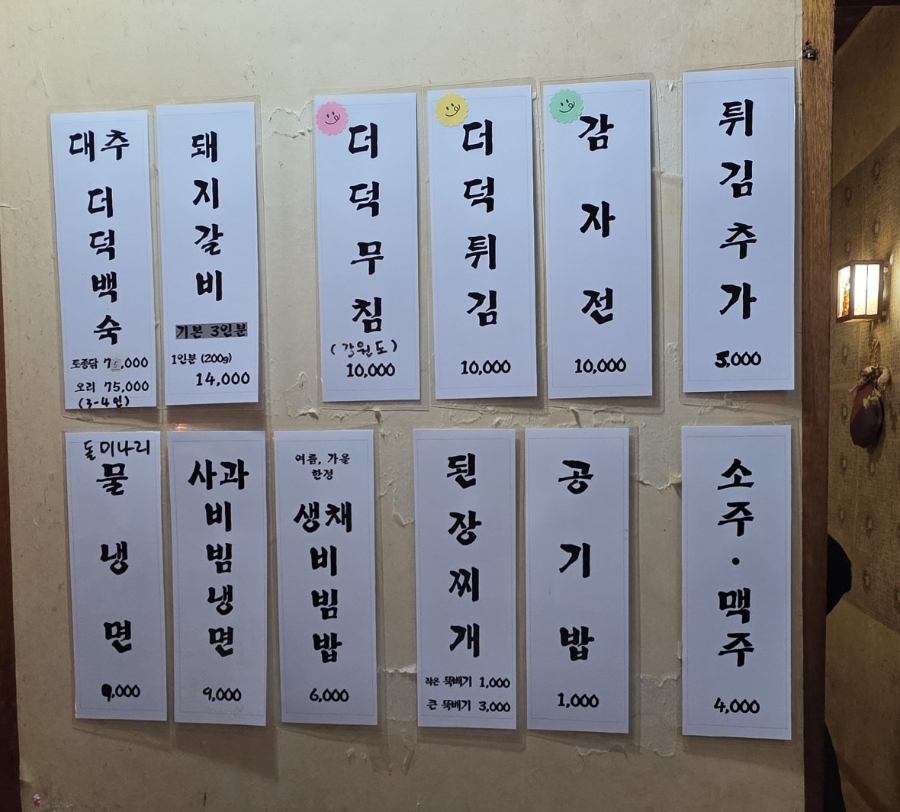 대추
더덕백숙
토종닭 75,000
오리 75,000
(3-4인)
돼지갈비
기본 3인분
1인분 (200g)
14,000
더덕무침
(강원도)
10,000
더덕튀김
10,000
감자전
10,000
튀김추가
5,000
돌미나리
물냉면
9,000
사과
비빔냉면
9,000
여름, 가을
한정
생채
비빔밥
6,000
된장찌개
작은 뚝배기 1,000
큰 뚝배기 3,000
공기밥
1,000
소주·맥주
4,000